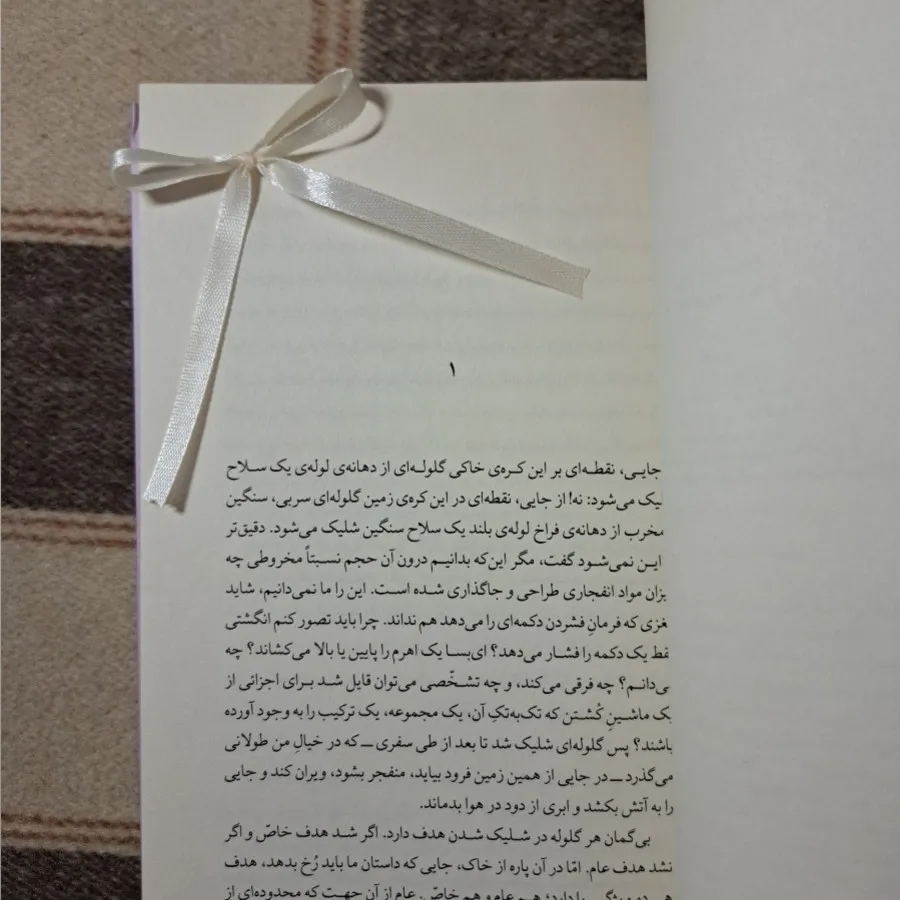 ۱
جایی، نقطه‌ای بر این کره‌ی خاکی گلوله‌ای از دهانه‌ی لوله‌ی یک سلاح
لیک می‌شود: نه! از جایی، نقطه‌ای در این کره‌ی زمین گلوله‌ای سربی، سنگین
مخرب از دهانه‌ی فراخ لوله‌ی بلند یک سلاح سنگین شلیک می‌شود. دقیق‌تر
این نمی‌شود گفت، مگر این‌که بدانیم درون آن حجم نسبتاً مخروطی چه
یزان مواد انفجاری طراحی و جاگذاری شده است. این را ما نمی‌دانیم، شاید
غزی که فرمانِ فشردن دکمه‌ای را می‌دهد هم نداند. چرا باید تصور کنم انگشتی
قط یک دکمه را فشار می‌دهد؟ ای‌بسا یک اهرم را پایین یا بالا می‌کشاند؟ چه
ی‌دانم؟ چه فرقی می‌کند، و چه تشخّصی می‌توان قایل شد برای اجزائی از
یک ماشینِ کُشتن که تک‌به‌تکِ آن، یک مجموعه، یک ترکیب را به وجود آورده
باشند؟ پس گلوله‌ای شلیک شد تا بعد از طی سفری ــ که در خیالِ من طولانی
می‌گذرد ــ در جایی از همین زمین فرود بیاید، منفجر بشود، ویران کند و جایی
را به آتش بکشد و ابری از دود در هوا بدماند.
بی‌گمان هر گلوله در شلیک شدن هدف دارد. اگر شد هدف خاصّ و اگر
نشد هدف عام. امّا در آن پاره از خاک، جایی که داستان ما باید رُخ بدهد، هدف
هر دو ویژگی را دارد؛ هم عام و هم خاصّ. عام از آن جهت که محدوده‌ای از